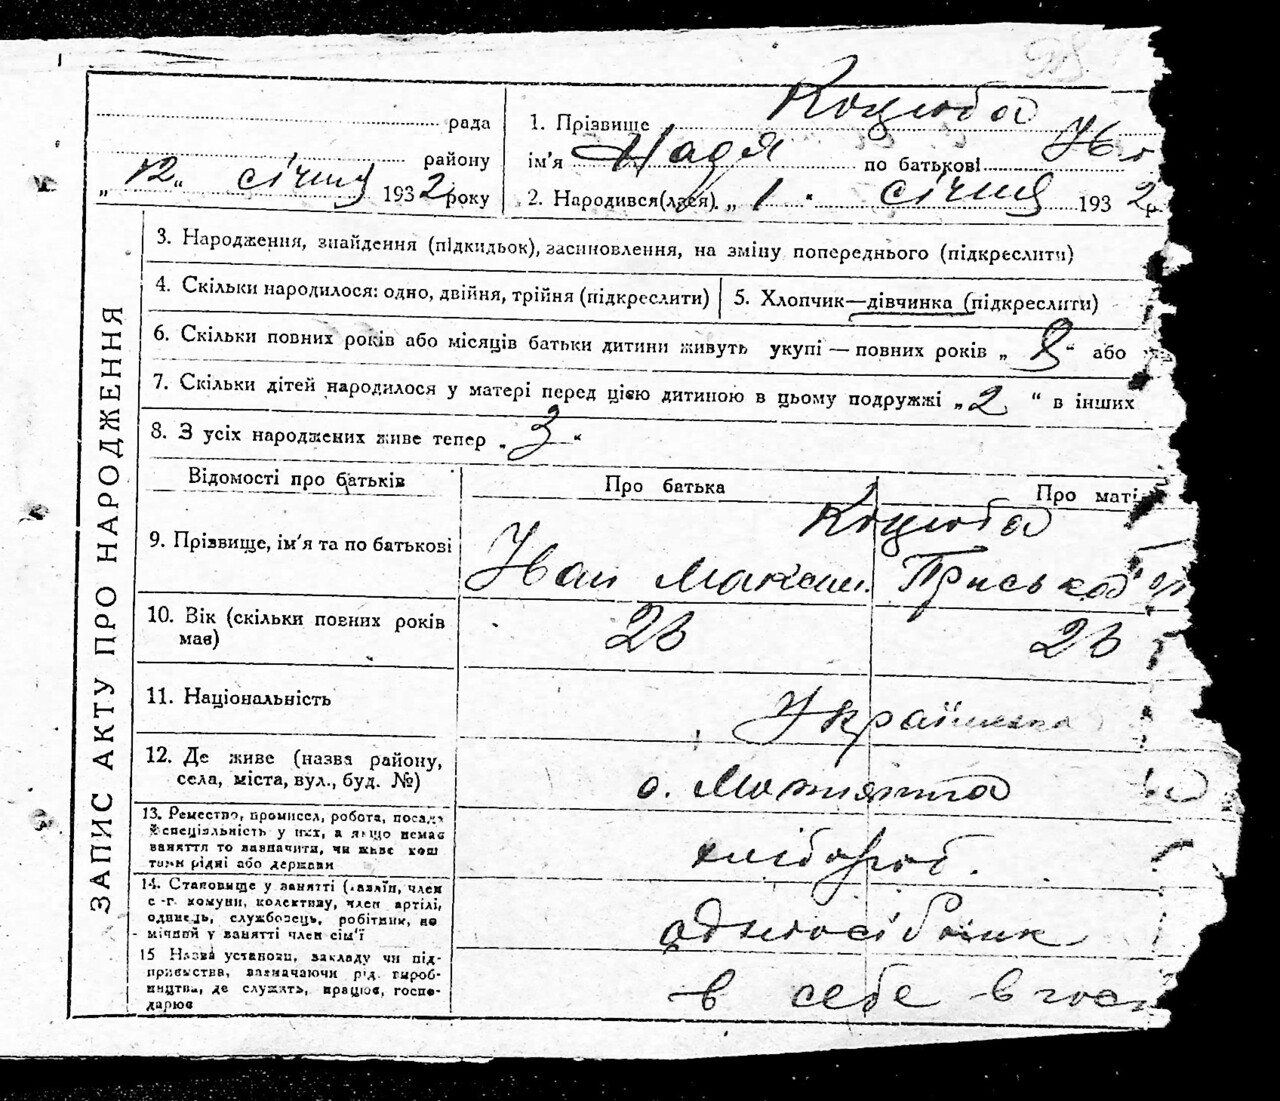 рада
району
„ 12 “ січня 1932 року
1. Прізвище Коцюба
ім'я Надя по батькові Ів
2. Народився(лася) „ 1 “ січня 1932
ЗАПИС АКТУ ПРО НАРОДЖЕННЯ
3. Народження, знайдення (підкидьок), засиновлення, на зміну попереднього (підкреслити)
4. Скільки народилося: одно, двійня, трійня (підкреслити)
5. Хлопчик—дівчинка (підкреслити)
6. Скільки повних років або місяців батьки дитини живуть укупі — повних років „ 8 “ або
7. Скільки дітей народилося у матері перед цією дитиною в цьому подружжі „ 2 “ в інших
8. З усіх народжених живе тепер „ 3 “
Відомості про батьків
Про батька
Про маті
9. Прізвище, ім'я та по батькові
Коцюба
Іван Максим. Приська
10. Вік (скільки повних років має)
28 28
11. Національність
Українська
12. Де живе (назва району, села, міста, вул., буд. №)
с.
13. Ремество, промисел, робота, посада й спеціяльність у них, а якщо немає заняття то зазначити, чи живе кош тами рідні або держави
хлібороб.
14. Становище у занятті (хазяїн, член с.-г. комуни, колективу, член артілі, одинець, службовець, робітник, по мічний у занятті член сім'ї
одноосібник
15 Назва установи, закладу чи під-
приємства, зазначаючи рід вироб-
ництва, де служить, працює, госпо-
дарює
в себе в госп